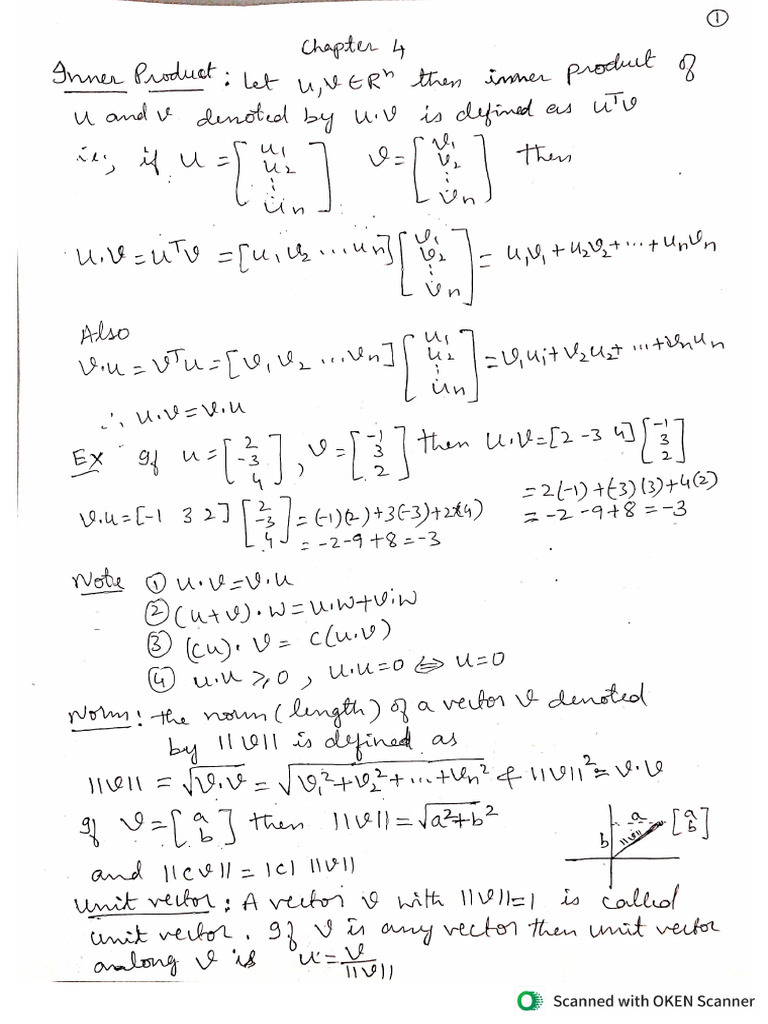 ①
Chapter 4
Inner Product: Let u,v∈Rⁿ then inner product of
u and v denoted by u.v is defined as uᵀv
i.e., if u = [u₁ u₂ ⋮ uₙ] v = [v₁ v₂ ⋮ vₙ] then
u.v = uᵀv = [u₁ u₂ ... uₙ] [v₁ v₂ ⋮ vₙ] = u₁v₁+u₂v₂+...+uₙvₙ
Also
v.u = vᵀu = [v₁ v₂ ... vₙ] [u₁ u₂ ⋮ uₙ] = v₁u₁+v₂u₂+...+vₙuₙ
∴ u.v = v.u
Ex If u = [2 -3 4], v = [-1 3 2] then u.v = [2 -3 4] [-1 3 2]
= 2(-1)+(-3)(3)+4(2)
= -2-9+8 = -3
v.u = [-1 3 2] [2 -3 4] = (-1)(2)+3(-3)+2(4)
= -2-9+8 = -3
Note ① u.v = v.u
② (u+v).w = u.w+v.w
③ (cu).v = c(u.v)
④ u.u ≥ 0, u.u=0 ⇔ u=0
Norm: the norm (length) of a vector v denoted
by ||v|| is defined as
||v|| = √v.v = √v₁²+v₂²+...+vₙ² & ||v||² = v.v
If v = [a b] then ||v|| = √a²+b²
a
b
||v||
[a b]
and ||cv|| = |c| ||v||
Unit vector: A vector v with ||v||=1 is called
unit vector. If v is any vector then unit vector
along v is u = v/||v||
Scanned with OKEN Scanner